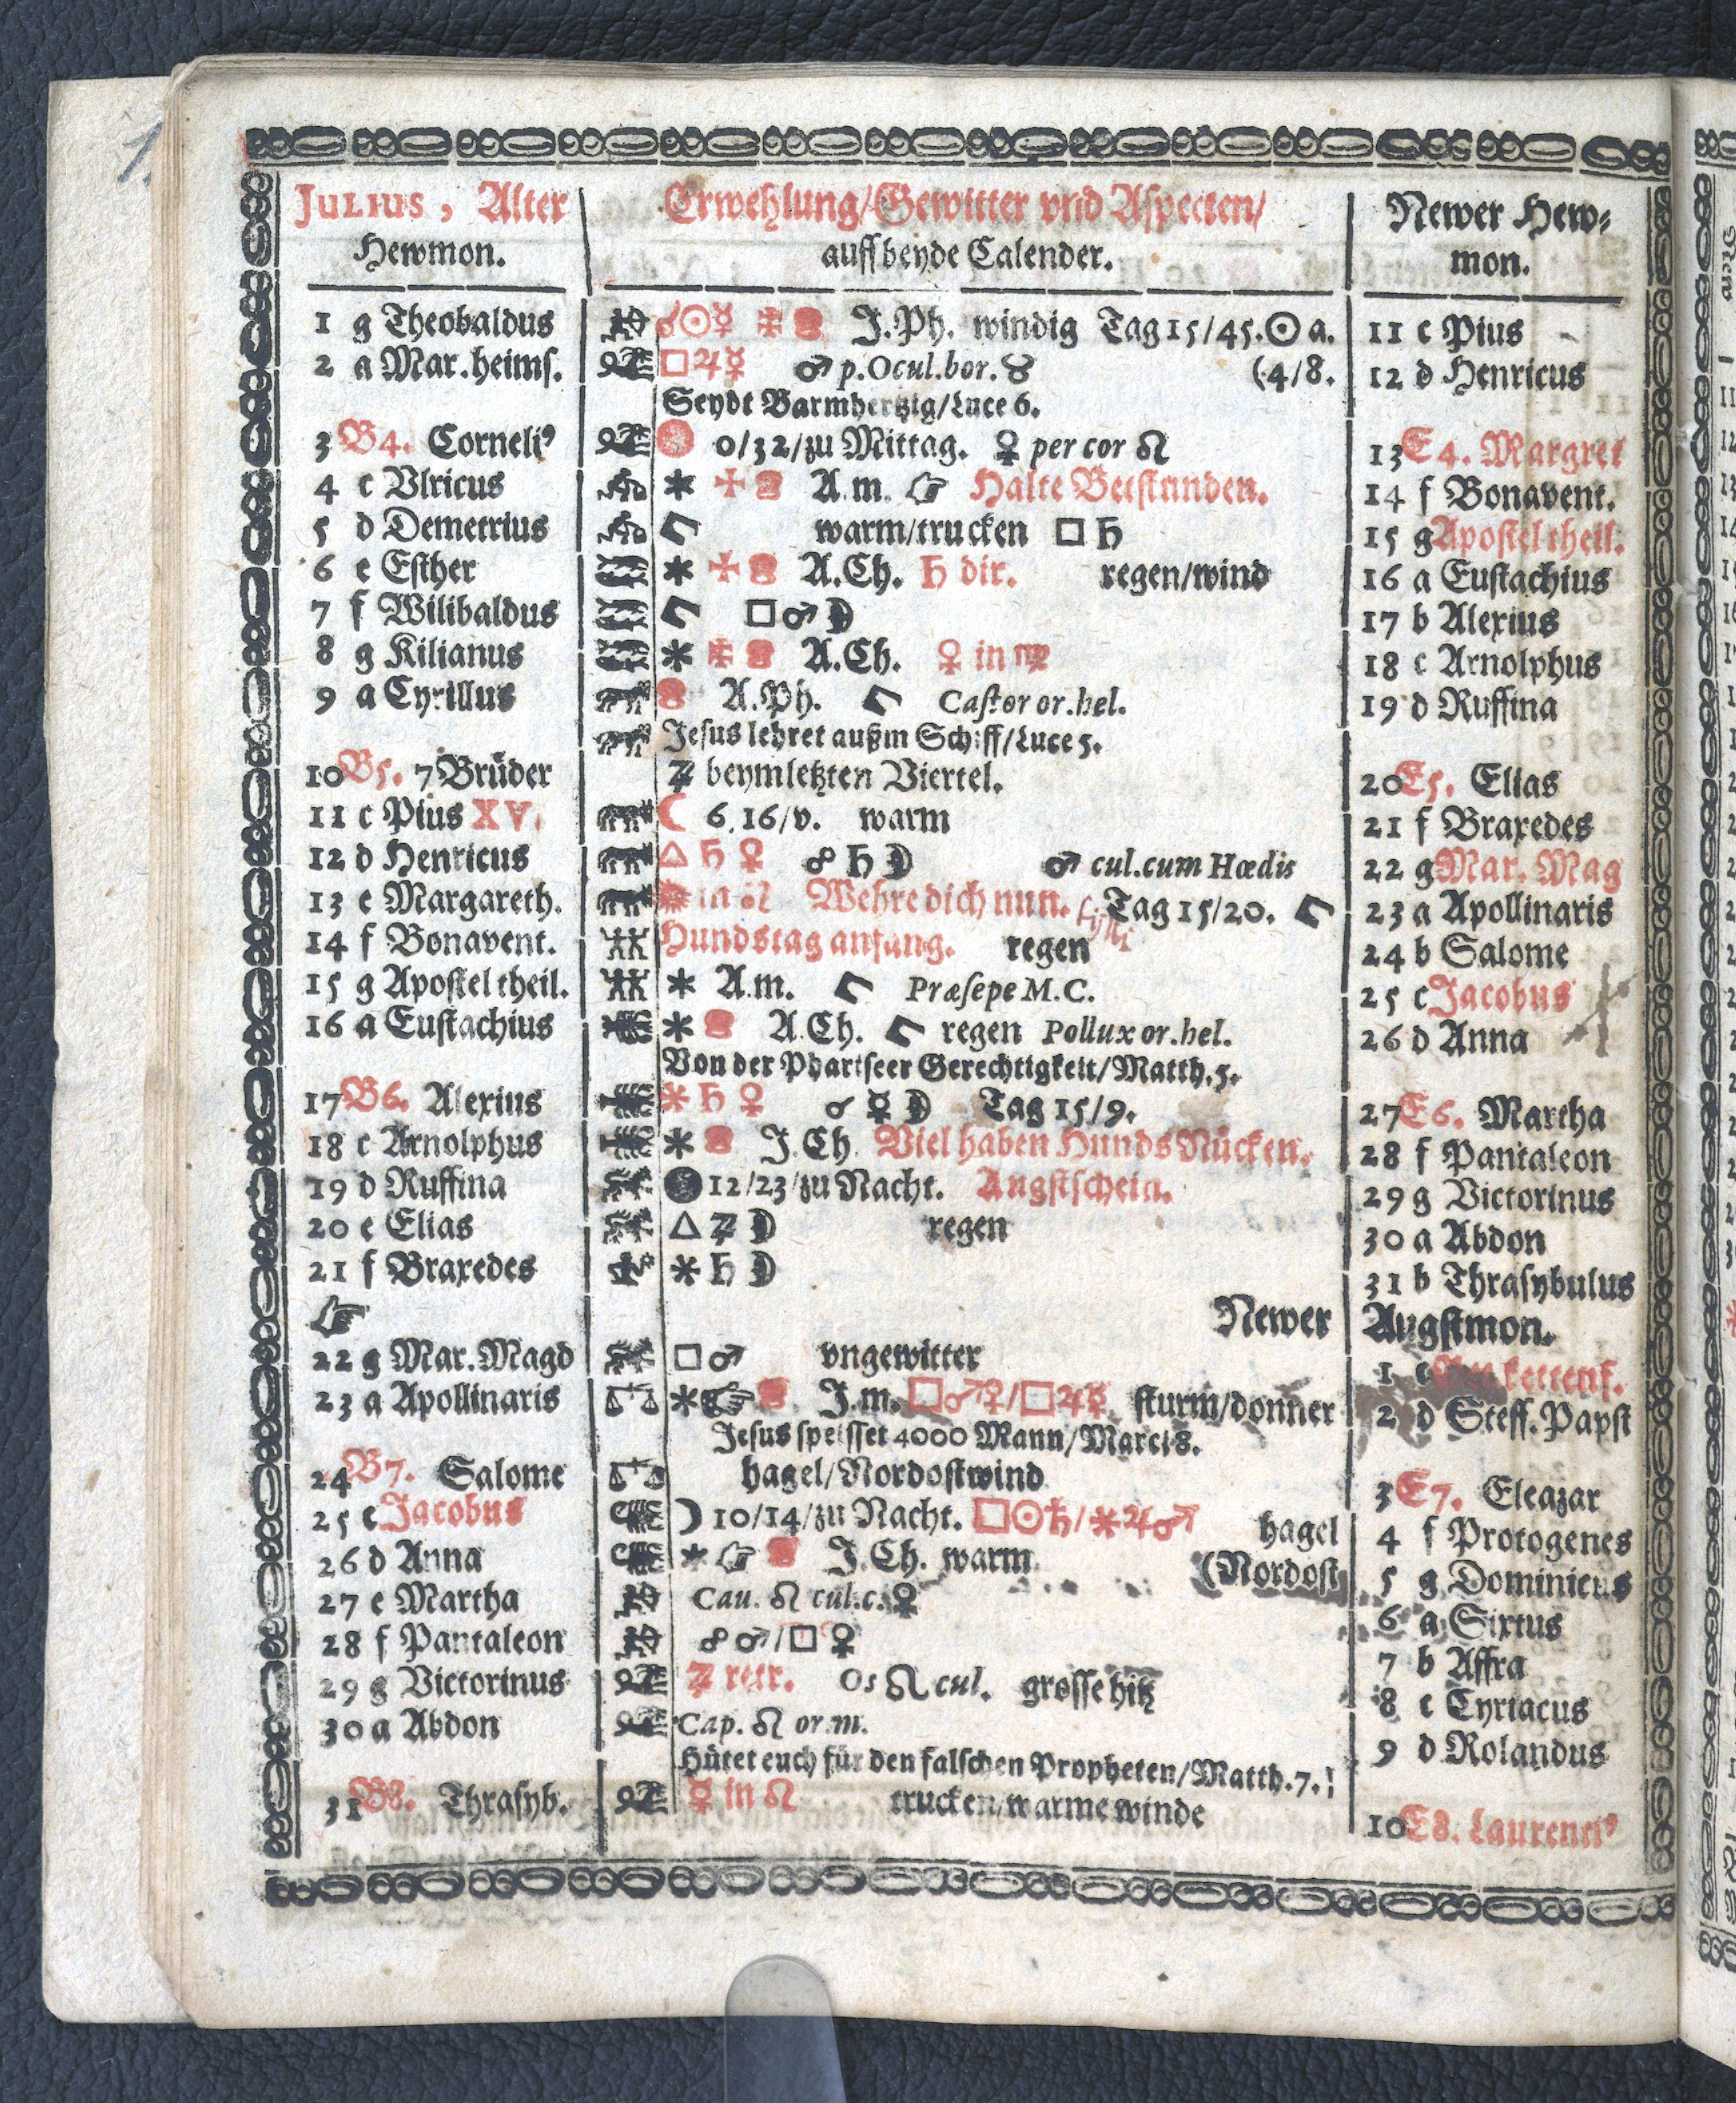 JULIUS, Alter Hewmon.
Erwehlung/Gewitter vnd Aspecten/ auff beyde Calender.
Newer Hew⸗mon.
1 g Theobaldus ☌☉☿ J.Ph. windig Tag 15/45. ☉ a. 11 c Pius
2 a Mar.heims. □♃☿ ♂ p.Ocul.bor. ♉ (4/8. 12 d Henricus
Seydt Barmhertzig/Luce 6.
3 B4. Corneli⁹ 0/32/zu Mittag. ♀ per cor ♌ 13 E4. Margret
4 c Vlricus * A.m. ☞ Halte Betstunden. 14 f Bonavent.
5 d Demetrius warm/trucken □ ♄ 15 g Apostel theil.
6 e Esther * A.Ch. ♄ dir. regen/wind 16 a Eustachius
7 f Wilibaldus □♂☽ 17 b Alexius
8 g Kilianus * A.Ch. ♀ in ♍ 18 c Arnolphus
9 a Cyrillus A.Ph. Castor or.hel. 19 d Ruffina
Jesus lehret außm Schiff/Luce 5.
10 B5. 7 Brüder ♃ beym letzten Viertel. 20 E5. Elias
11 c Pius XV. ☾ 6.16/v. warm 21 f Braxedes
12 d Henricus △ ♄ ♀ ☍ ♄ ☽ ♂ cul.cum Hœdis 22 g Mar. Mag
13 e Margareth. in ♌ Wehre dich nun. Tag 15/20. 23 a Apollinaris
14 f Bonavent. Hundstag anfang. regen 24 b Salome
15 g Apostel theil. * A.m. Præsepe M.C. 25 c Jacobus
16 a Eustachius * A.Ch. regen Pollux or.hel. 26 d Anna
Von der Phariseer Gerechtigkeit/Matth.5.
17 B6. Alexius * ♄ ♀ ☌ ☿ ☽ Tag 15/9. 27 E6. Martha
18 c Arnolphus * J.Ch. Viel haben Hunds Nücken. 28 f Pantaleon
19 d Ruffina ● 12/23/zu Nacht. Augstschein. 29 g Victorinus
20 e Elias △ ♃ ☽ regen 30 a Abdon
21 f Braxedes * ♄ ☽ 31 b Thrasybulus
☞ Newer Augstmon.
22 g Mar.Magd □♂ vngewitter 1 c kettenf.
23 a Apollinaris *☞ J.m. □♂♀/□♃☿ sturm/donner 2 d Steff. Papst
Jesus speisset 4000 Mann/Marci 8.
24 B7. Salome hagel/Nordostwind 3 E7. Eleazar
25 c Jacobus ☽ 10/14/zu Nacht. □☉♄/*♃♂ hagel 4 f Protogenes
26 d Anna * ☞ J.Ch. warm (Nordost 5 g Dominicus
27 e Martha Cau. ♌ cul.c. ♀ 6 a Sixtus
28 f Pantaleon ☍ ♂/□ ♀ 7 b Affra
29 g Victorinus ♃ retr. Os ♌ cul. grosse hitz 8 c Cyriacus
30 a Abdon Cap. ♌ or.m. 9 d Rolandus
Hütet euch für den falschen Propheten/Matth.7.
31 B8. Thrasyb. ☿ in ♌ trucken/warme winde 10 E8. Laurenti⁹